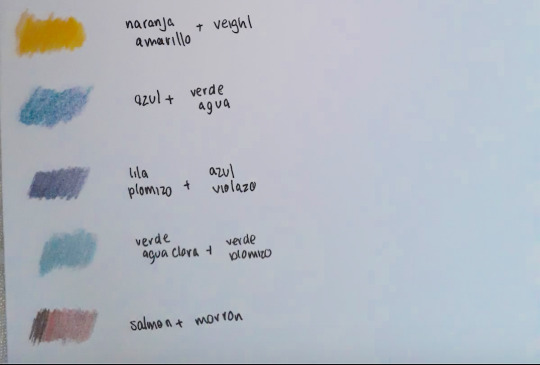 naranja
amarillo +
azul + verde
agua
lila
plomizo + azul
violazo
verde
agua clara + verde
plomizo
salmon + marron